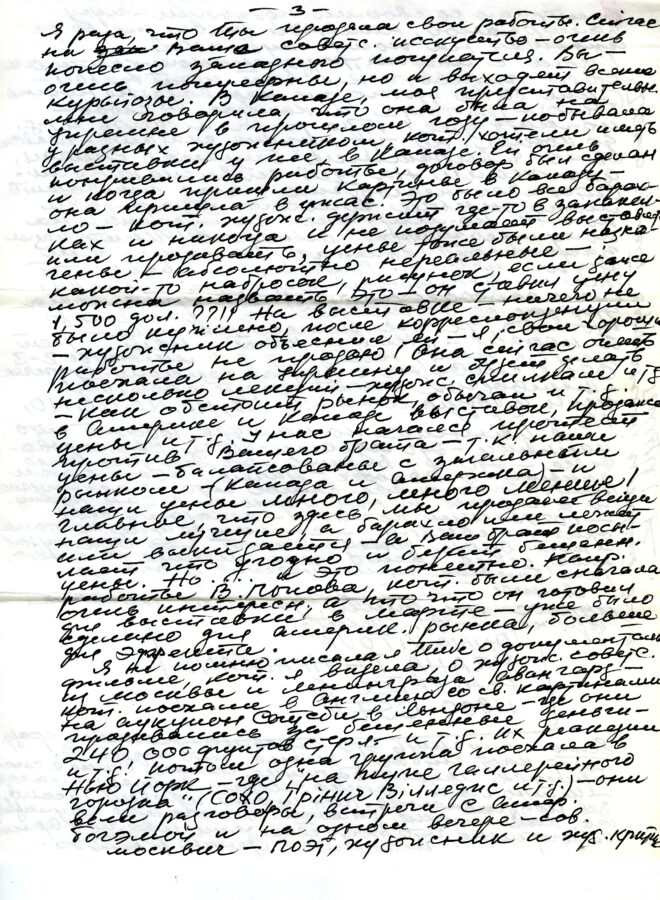 — 3 —
Я рада, что Ты продала свои работы. Сейчас
на Ваше советс. исскуство — очень
много западного покупател. Вы —
очень популярны, но и выходят всякие
курьозы. В Канаде, моя представительн.
мне говорила что она была на
украине в прошлом году — побывала
у разных художников, кот. хотели иметь
выставки у нее, в Канаде. Ей очень
понравились работы, договор был сделан
и когда пришли картины в Канаду —
она пришла в ужас! Это было все барах-
ло — кот. худож. держит где-то в
и никогда и не выставлять
или продавать, цены тоже были назна-
чены — абсолютно нереальные —
какой-то набросок, рисунок, если даже
можна назвать это — он ставил цену
1,500 дол. ??!! На выставке — ничего не
было куплено, после корреспонденции
— художник объяснил ей — я, свои хорош.
работы не продаю! Она сейчас опять
поехала на украину и будет делать
несколько лекций — худож. и т.д.
— как обстоит рынок, обычаи и т.д.
в Америке и Канаде выставок, продажа
цены и т.д. У нас начался протест
против Вашего брата — т.к. наши
цены — балансованы с
рынком — (Канада и Америка) — и
наши цены много, много меньше!
главное, что здесь, мы продаем вещи
наши лучшие, а барахло или лежит
или выкидается — а Ваш брат посы-
лает что угодно и берет бешенн.
цены. Но . . . . и это понятно. Напр.
работы В. Попова, кот. были сначала
очень интересн., а что что он готовил
для выставки в марте — уже было
сделано для америк. рынка, больше
для эффекта.
Я не помню писала я Тебе о документаль.
фильме, кот. я видела, о худож. советс.
из москвы и ленинграда (авангард —
кот. поехали в Англию со св. картинами
на аукцион Сотсби, в Лондоне — где они
продавались за бешенные деньги —
240 000 фунтов стерл. и т.д. их реакции
и т.д. потом одна группа поехала в
Нью Йорк — где „на кухне галлерейного
городка" (СОХО, Грінич Вілледис и т.д.) — они
вели разговоры, встречи с Амер.
богэмой и на одном вечере — сов.
москвич — поэт, художник и худ. критик